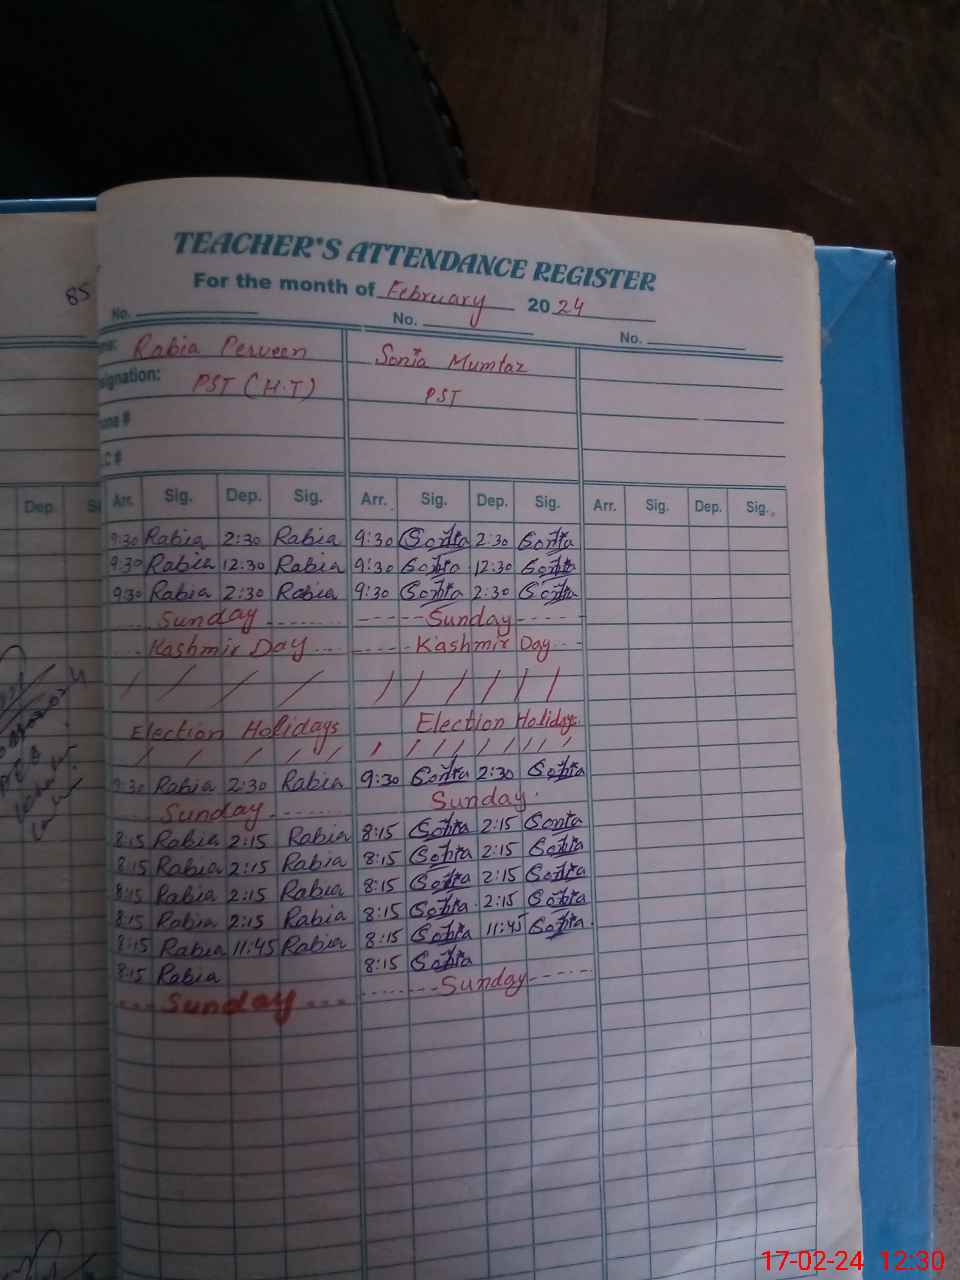 85
TEACHER'S ATTENDANCE REGISTER
For the month of February 2024
No. No. No.
Rabia Perveen Sonia Mumtaz
signation: PST (H.T) PST
one #
.C #
Dep. Si Arr. Sig. Dep. Sig. Arr. Sig. Dep. Sig. Arr. Sig. Dep. Sig.
9:30 Rabia 2:30 Rabia 9:30 Sonia 2:30 Sonia
9:30 Rabia 12:30 Rabia 9:30 Sonia 12:30 Sonia
9:30 Rabia 2:30 Rabia 9:30 Sonia 2:30 Sonia
Sunday Sunday
Kashmir Day Kashmir Day
Election Holidays Election Holiday
9:30 Rabia 2:30 Rabia 9:30 Sonia 2:30 Sonia
Sunday Sunday
8:15 Rabia 2:15 Rabia 8:15 Sonia 2:15 Sonia
8:15 Rabia 2:15 Rabia 8:15 Sonia 2:15 Sonia
8:15 Rabia 2:15 Rabia 8:15 Sonia 2:15 Sonia
8:15 Rabia 2:15 Rabia 8:15 Sonia 2:15 Sonia
8:15 Rabia 11:45 Rabia 8:15 Sonia 11:45 Sonia
8:15 Rabia 8:15 Sonia
Sunday Sunday
17-02-24 12:30